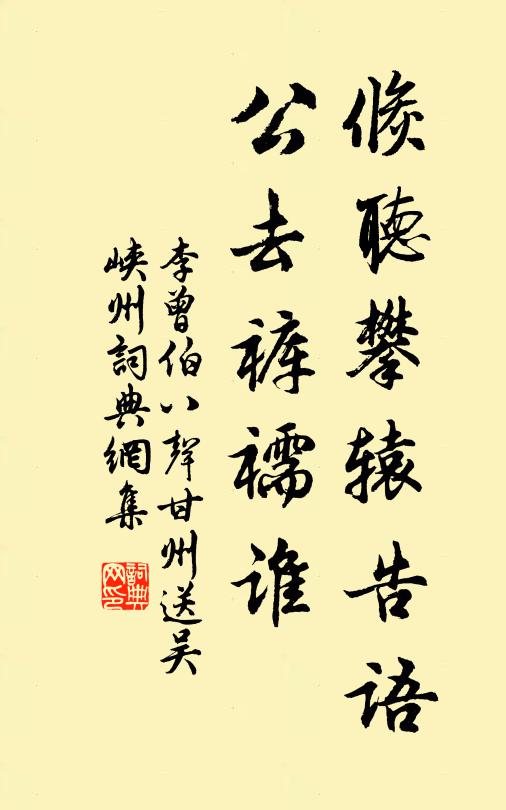 倏聽攀辕告语
公去裤襦谁
李曾伯八聲甘州送吴
峡州詞典網集
詞典网印